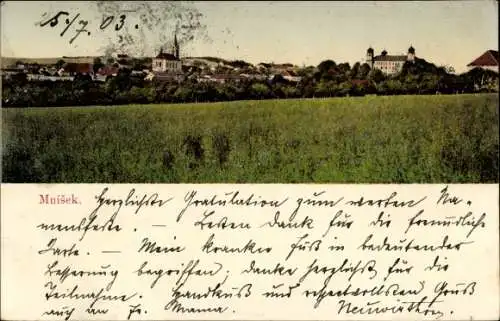 15./7. 03.
Mníšek.
Herzlichste Gratulation zum werten Na-
mensfeste. — Besten Dank für die freundliche
Karte. — Mein kranker Fuss in bedeutender
Besserung begriffen; danke herzlichst für die
Teilnahme. Handkuss und respectvollsten Gruss
auch an Fr. Mama. Neuwirth